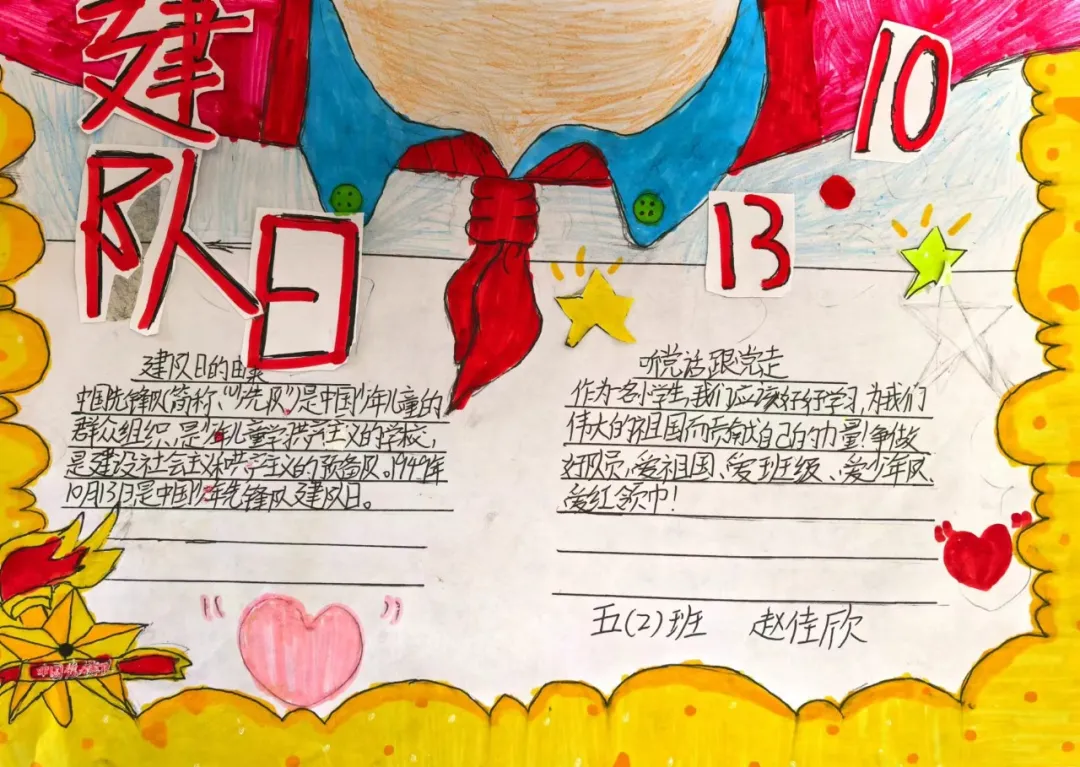 建
队
日
10
13
建队日的由来
中国先锋队(简称“少先队”)是中国少年儿童的
群众组织,是少年儿童学习共产主义的学校,
是建设社会主义和共产主义的预备队。1949年
10月13日是中国少年先锋队建队日。
听党话跟党走
作为一名小学生,我们应该好好学习,为我们
伟大的祖国而贡献自己的力量!争做
好队员,爱祖国、爱班级、爱少年队、
爱红领巾!
五(2)班 赵佳欣